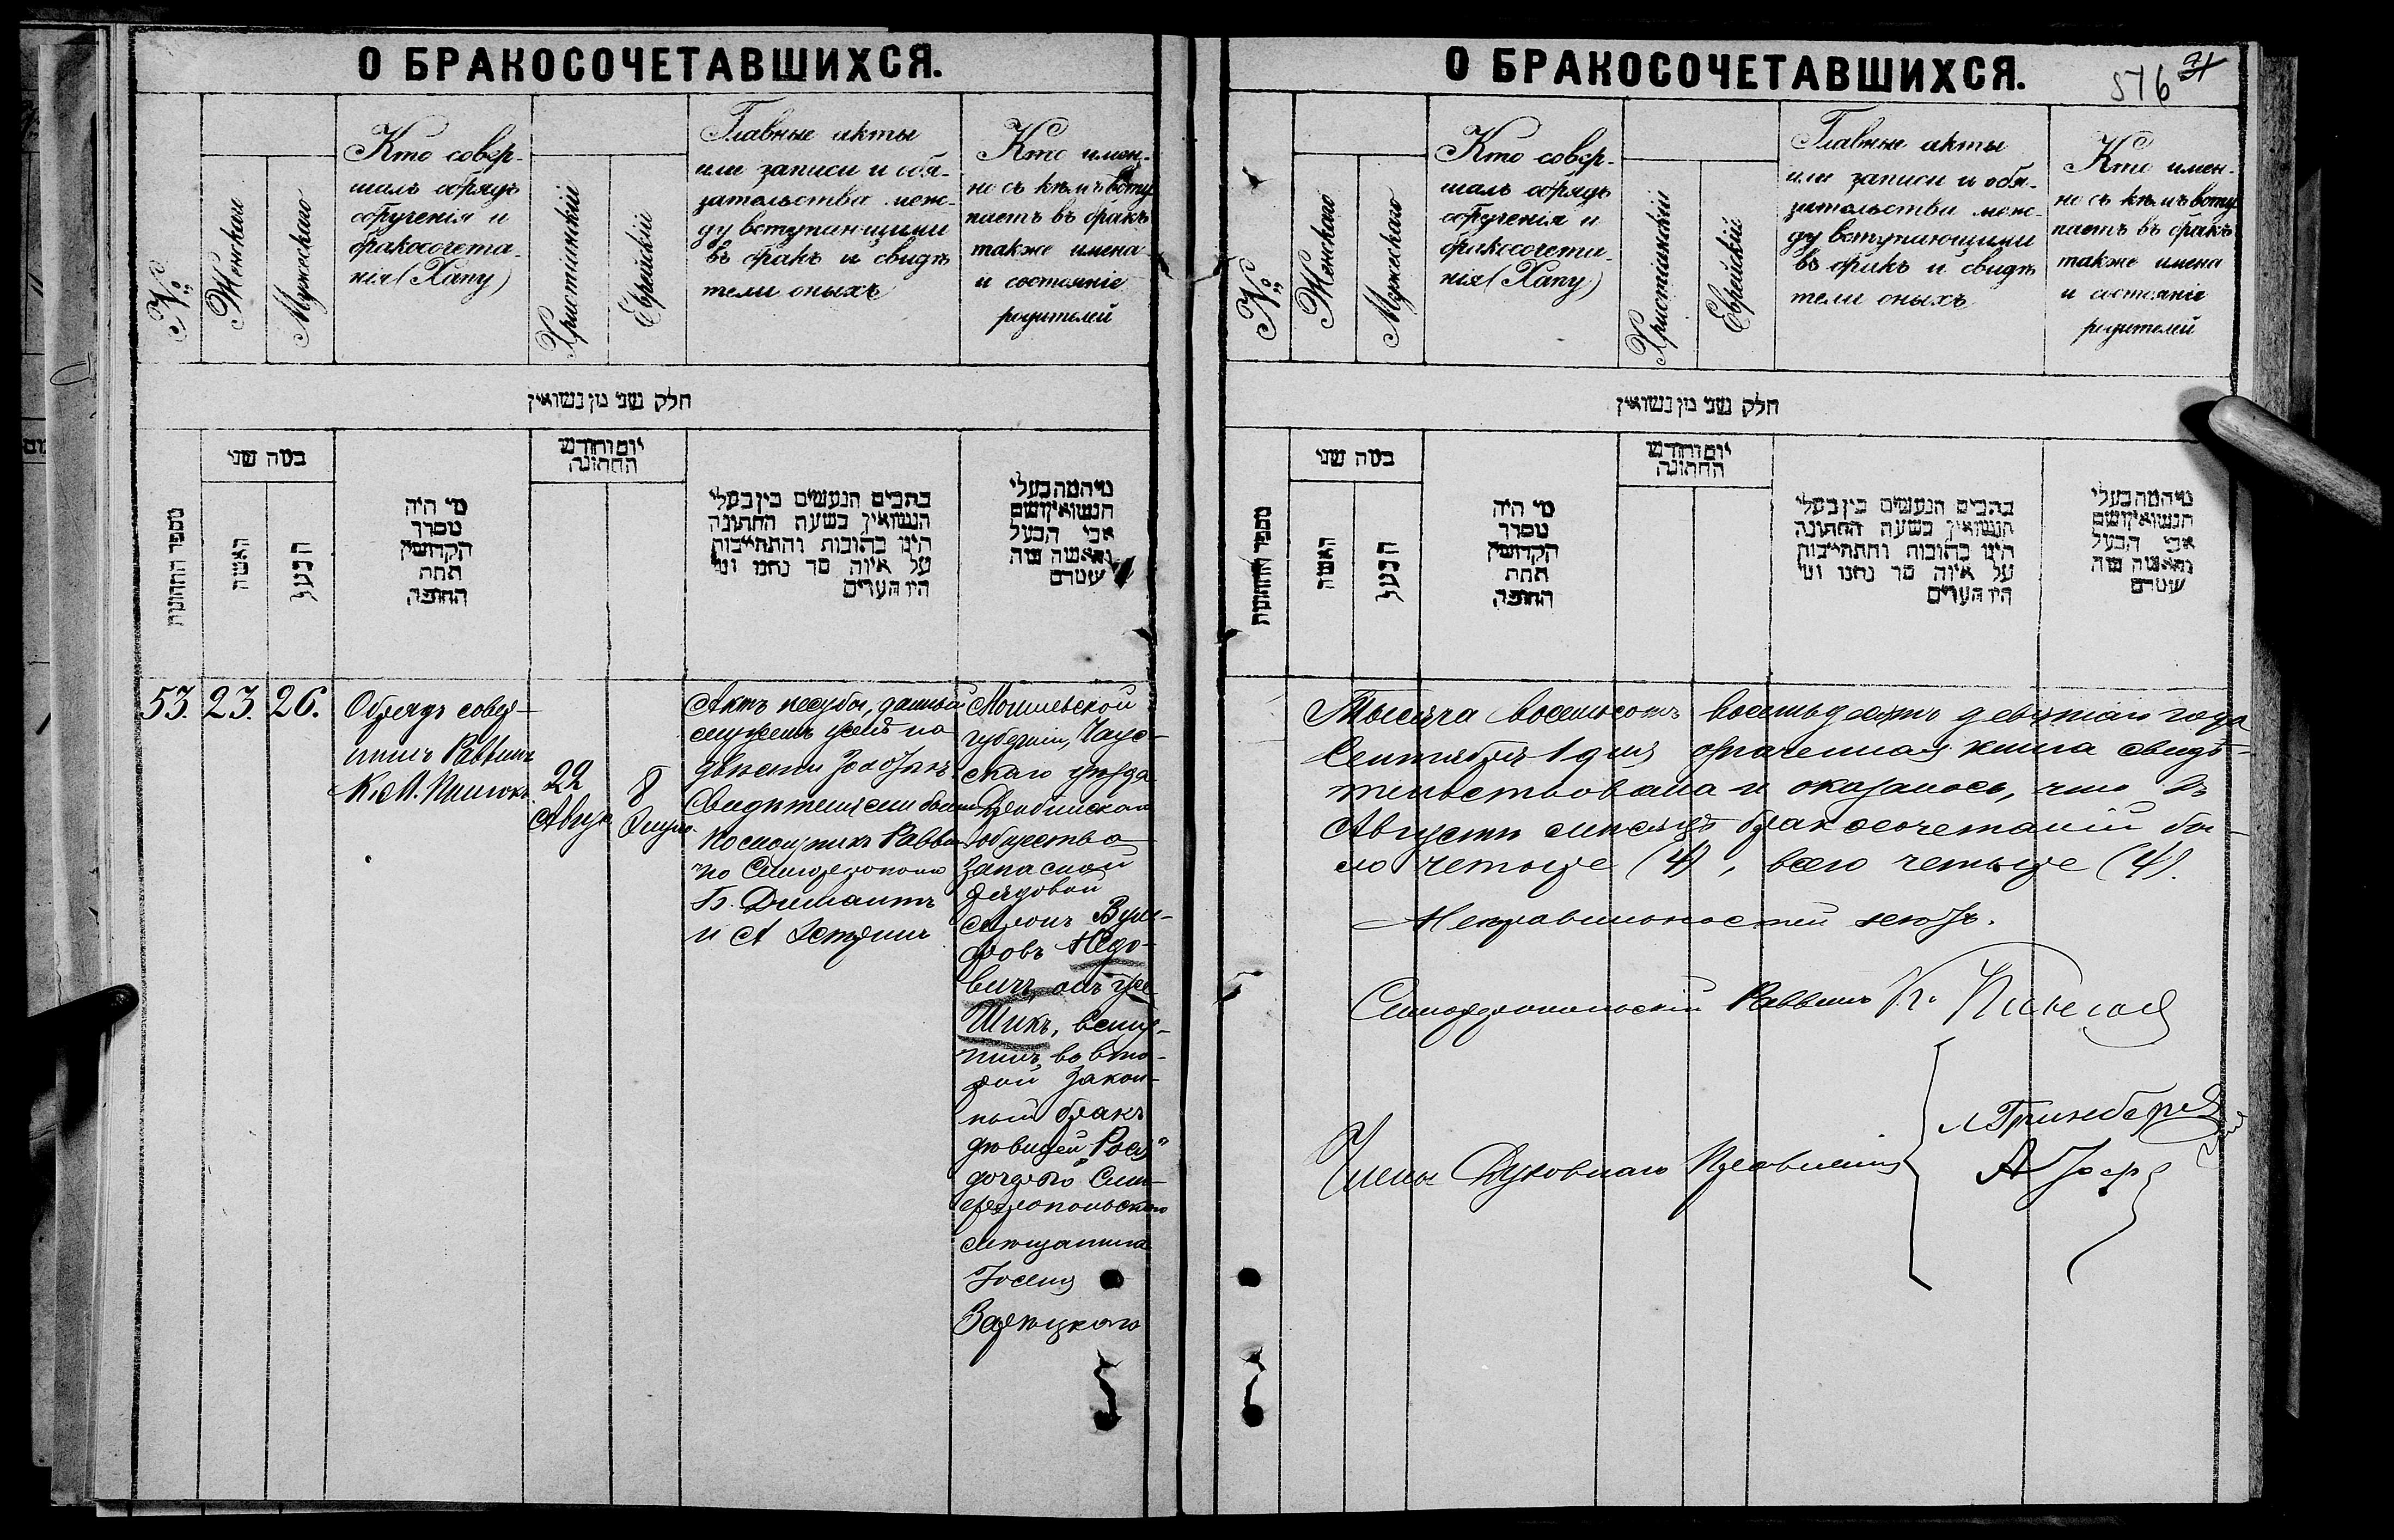 О БРАКОСОЧЕТАВШИХСЯ.
№
Женскаго
Мужскаго
Кто совер-
шалъ обрядъ
обрученія и
бракосочета-
нія (Хапу)
Христіянскій
Еврейскій
Главные акты
или записи и обя-
зательства меж-
ду вступающими
въ бракъ и свидѣ
тели оныхъ
Кто имен-
но съ кѣмъ вступ
паетъ въ бракъ
также имена
и состояніе
родителей
חלק שני מן נשואין
מספר החתונות
כמה שני
האשה
הבעל
מי היה
מסדר
הקדושין
תחת
החופה
יום וחודש
החתונה
כתבים הנעשים בין בעלי
הנשואין בשעת החתונה
הינו כתובות והתחייבות
על איזה סך נתנו ומי
היו העדים
מי המה בעלי
הנשואין ושם
אבי הבעל
והאשה ומה
שטרם
53.
23.
26.
Обрядъ совер-
шилъ Раввинъ
К. А.
22
Авгус
8
Актъ кесубы, данный
мужемъ женѣ на
двѣсти зол.
Свидѣтелями были
Помощникъ Равви
по Симферополю
Б. Димантъ
и А
Могилевской
губерніи, Чаус-
скаго уѣзда
общества
запасной
рядовой
Вуль-
фовъ
вичъ, онъ же
Шикъ, вступ-
пилъ во вто-
рой закон-
ный бракъ
дѣвицей „Рося"
дочерью Сим-
феропольскаго
мѣщанина
Іосепа
Зарѣцкого
О БРАКОСОЧЕТАВШИХСЯ.
576
№
Женскаго
Мужскаго
Кто совер-
шалъ обрядъ
обрученія и
бракосочета-
нія (Хапу)
Христіянскій
Еврейскій
Главные акты
или записи и обя-
зательства меж-
ду вступающими
въ бракъ и свидѣ
тели оныхъ
Кто имен-
но съ кѣмъ вступ
паетъ въ бракъ
также имена
и состояніе
родителей
חלק שני מן נשואין
מספר החתונות
כמה שני
האשה
הבעל
מי היה
מסדר
הקדושין
תחת
החופה
יום וחודש
החתונה
כתבים הנעשים בין בעלי
הנשואין בשעת החתונה
הינו כתובות והתחייבות
על איזה סך נתנו ומי
היו העדים
מי המה בעלי
הנשואין ושם
אבי הבעל
והאשה ומה
שטרם
Тысяча восемьсотъ восемьдесятъ девятаго года
Сентября 1 дня означенная книга свидѣ-
тельствована и оказалось, что въ
Августѣ мѣсяцѣ бракосочетаній бы-
ло четыре (4), всего четыре (4).
Неправильностей нѣтъ.
Симферопольскій Раввинъ К.
Члены Духовнаго Правленія
Гринберг
А